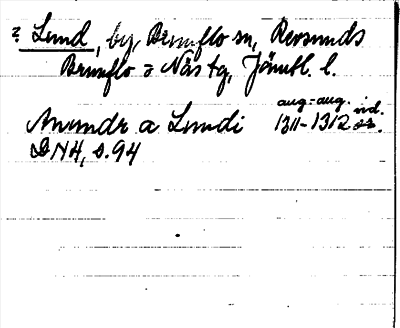 ? Lund, by, Brunflo sn, Revsunds
Brunflo o Näs tg, Jämtl. l.
aug.-aug.
Anundr a Lundi 1311-1312
DNH, s. 94